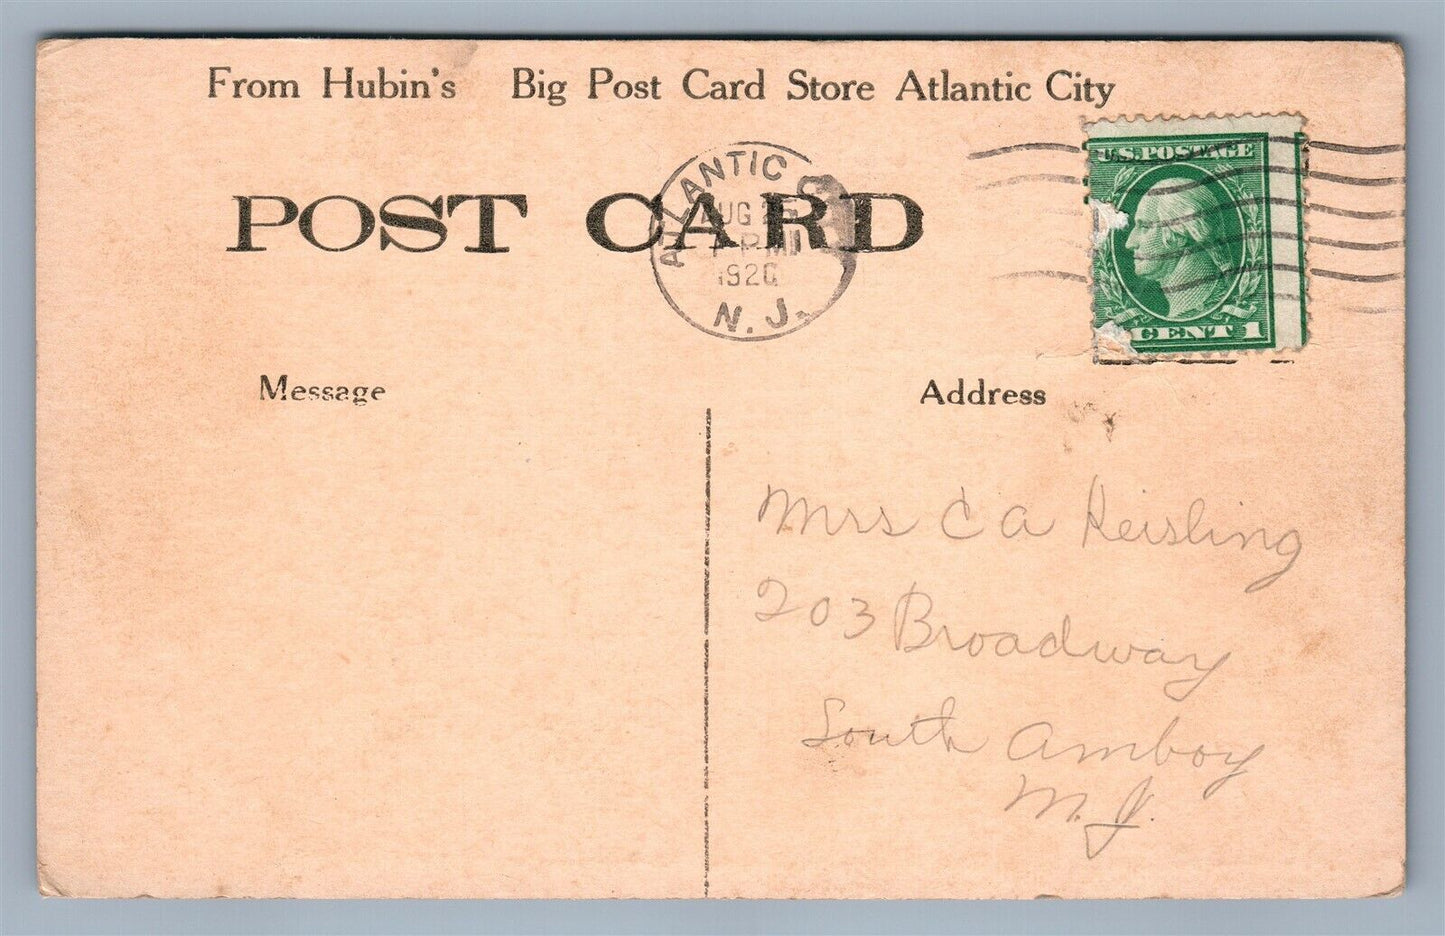 From Hubin's Big Post Card Store Atlantic City
POST CARD
ATLANTIC
AUG 25
PM
1920
N. J.
U.S. POSTAGE
CENT 1
Message
Address
Mrs C A Keisling
203 Broadway
South Amboy
N. J.